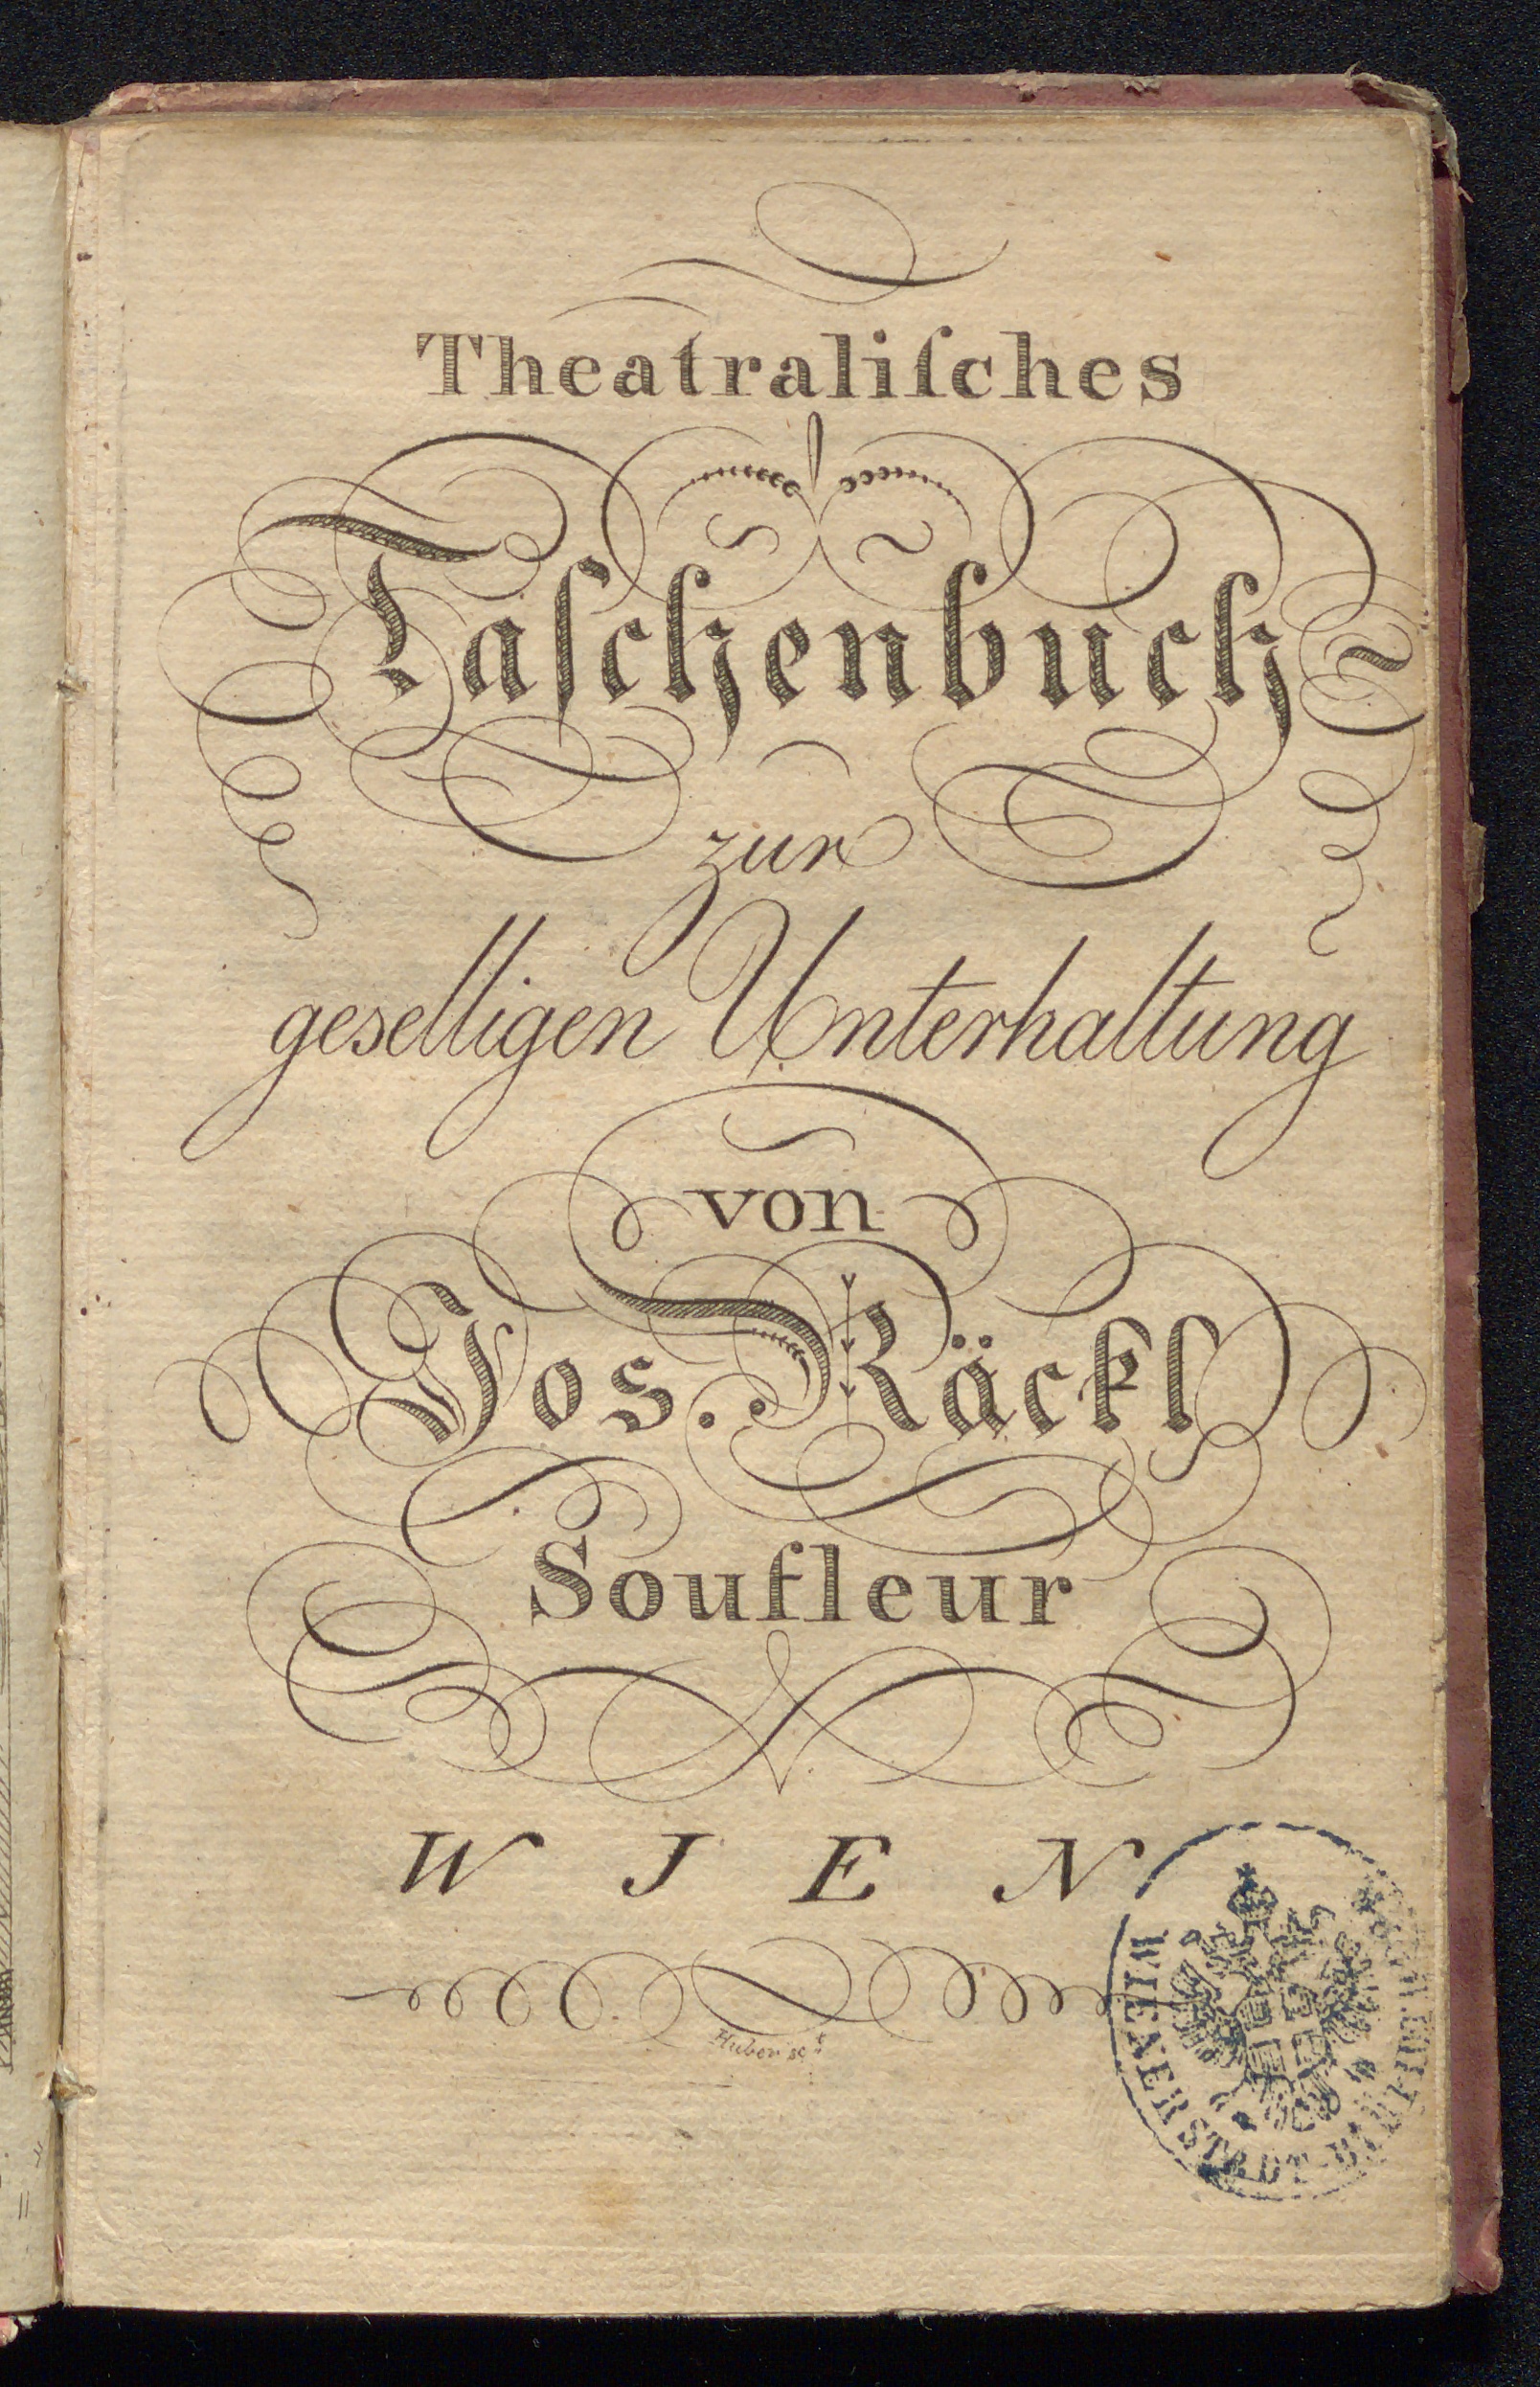 Theatraliſches
Taſchenbuch
zur
geselligen Unterhaltung
von
Jos. Räckl
Soufleur
WJEN
Huber sc
WIENER STADT-